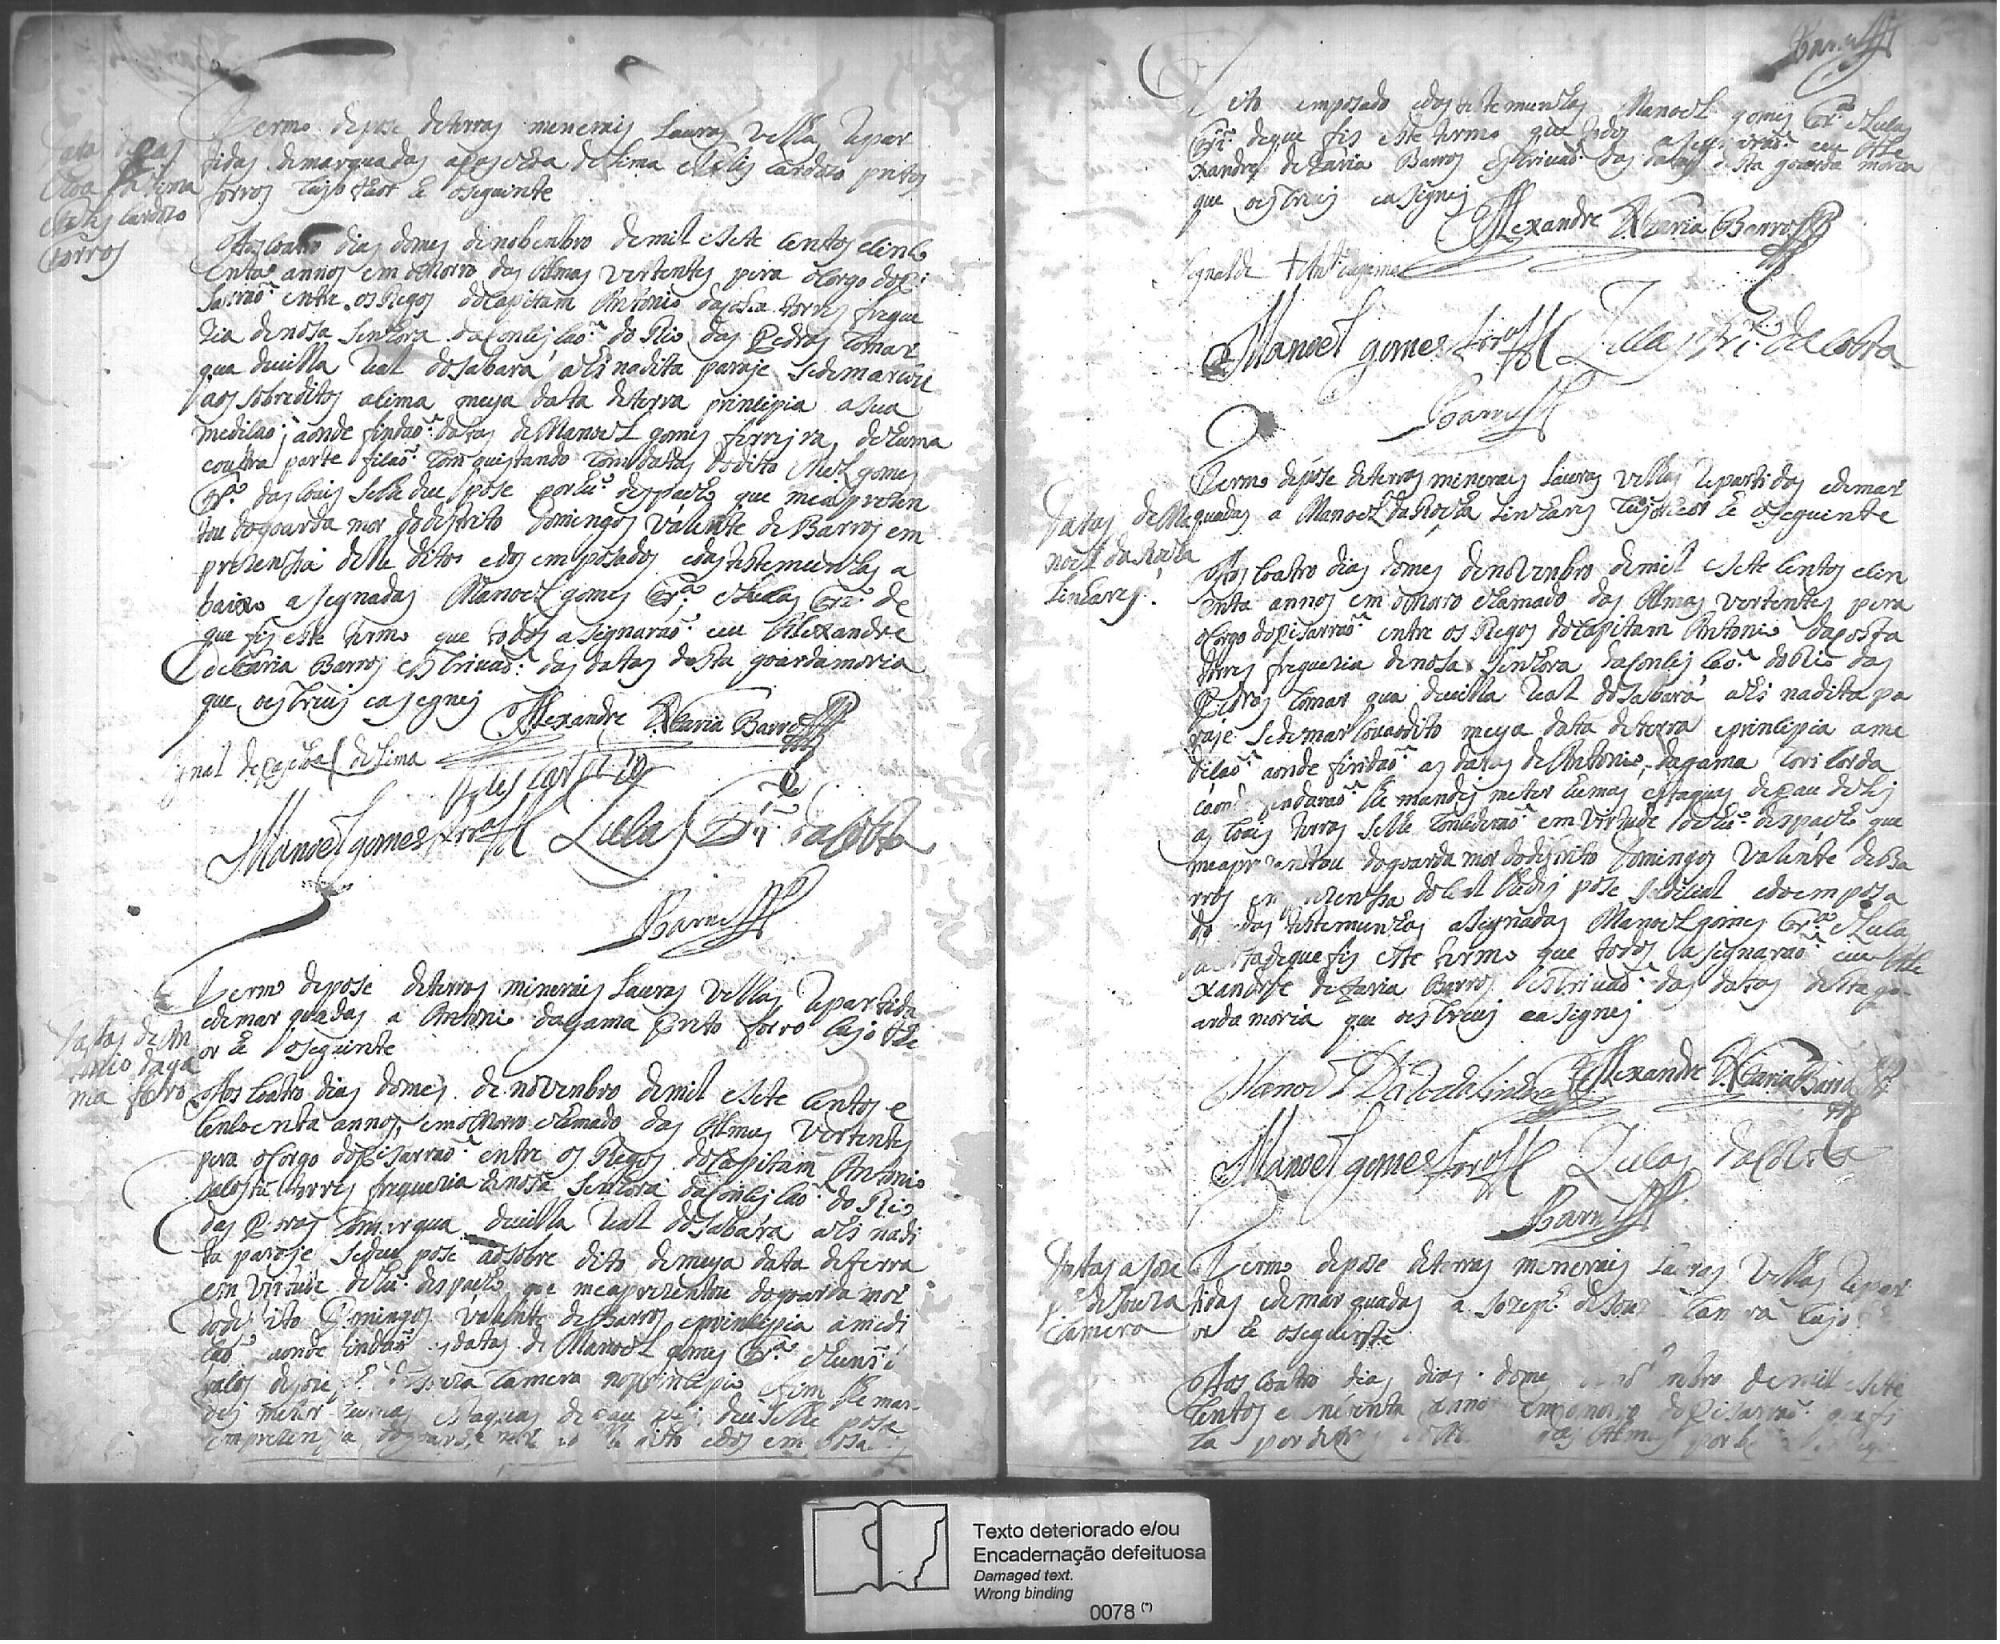 Termo depose deterras menerais Lauras vellas Repar
tidas demarquadas apascoa delima e felis cardozo pretos
forros cujo theor he oseguinte
Data de pas
coa delima
e felis cardozo
forros
Aos coatro dias domes denobenbro demil esete centos ecinco
enta annos em oMorro das Almas vertentes pera oCorgo dopi
sarrão entre os Regos docapitam Antonio dacosta torres fregue
zia denosa Senhora daConseicão do Rio das Pedras Comar
qua davilla Real doSabara ahi nadita paraje sedemarcou
aos sobreditos asima meya data deterra principia asua
medicão aonde findão datas deManoel gomes ferreira dehuma
eoutra parte
dodito Mel gomes
Frª das coais selhe deu pose por hũ despacho que meaprezen
tou doguarda mor dodestrito Domingos Valente de Barros em
prezensa delle dito edos emposados edastestemunhas a
baixo asegnadas Manoel gomes Frª eLucas Frª de
que fis este termo que todos asignarão eu Alexandre
deFaria Barros escrivão das datas desta goardamoria
que oescrevi easigney Alexandre de Faria Barros
signal depascoal delima
felis cardozo
Manoel gomes Frrª Lucas Frª dacosta
Barros
Termo depose deterras minerais Lauras vellas Repartida
edemarquadas a Antonio dagama Preto forro cujo the
or he oseguinte
Datas de An
tonio daga
ma forro
Aos coatro dias domes de novenbro demil esete centos e
cincoenta annos emoMorro chamado das Almas vertentes
pera oCorgo dopisarrão entre os Regos docapitam Antonio
dacosta torres freguezia denosa Senhora daConseicão do Rio
das Pedras Comarqua davilla Real doSabara ahi nadi
ta paraje sedeu pose aosobre dito demeya data deterra
em virtude dehũ despacho que meaprezentou doguarda mor
dodestrito Domingos Valente deBarros eprincipia amedi
cão aonde findão asdatas de Manoel gomes Frª
Camera noprincipio efim lhe man
dei meter humas estaquas de pau
emprezensa doguarda mor
dito edos emposados
Barros
dito emposado edastestemunhas Manoel gomes Frª eLucas
Frª deque fis este termo que todos asignarão eu Ale
xandre deFaria Barros Escrivão das datas desta goarda moria
que oescrevi easigney
Alexandre de Faria Barros
Signal de + Antº dagama
Manoel gomes Frrª Lucas Frª dacosta
Barros
Termo depose deterras minerais Lauras vellas Repartidas edemar
quadas a Manoel daRocha Linhares cujotheor he oseguinte
Datas deMa
noel daRocha
Linhares
Aos coatro dias domes denovenbro demil esete centos ecin
coenta annos em oMorro chamado das Almas vertentes pera
oCorgo dopisarrão entre os Regos docapitam Antonio dacosta
torres freguezia denosa Senhora daConseicão doRio das
Pedras Comarqua davilla Real doSabara ahi nadita pa
raje sedemarcou aodito meya data deterra eprincipia ame
dicão aonde findão as datas deAntonio dagama
lhe mandey meter humas estaquas depau
as coais terras selhe concederão emvirtude dehũ despacho que
meaprezentou doguarda mor dodestrito Domingos Valente deBa
rros em prezensa docoal lhedey pose judicial edoemposa
do edas testemunhas asignadas Manoel gomes Frª eLucas
dacosta deque fis este termo que todos asignarão eu Ale
xandre deFaria Barros Escrivão das datas destago
ardamoria que oescrevi easigney
Manoel da Rocha Linhares Alexandre de Faria Barros
Manoel gomes Frrª Lucas dacosta
Barros
Datas a Joze
ph deSouza
Camera
Termo depose deterras menerais Lauras vellas Repar
tidas edemarquadas a Jozeph deSouza Camera cujo the
or he oseguinte
Aos coatro dias domes novenbro demil esete
centos esincoenta annos emomorro dopisarrão
das Almas
Texto deteriorado e/ou
Encadernação defeituosa
Damaged text.
Wrong binding
0078 (*)